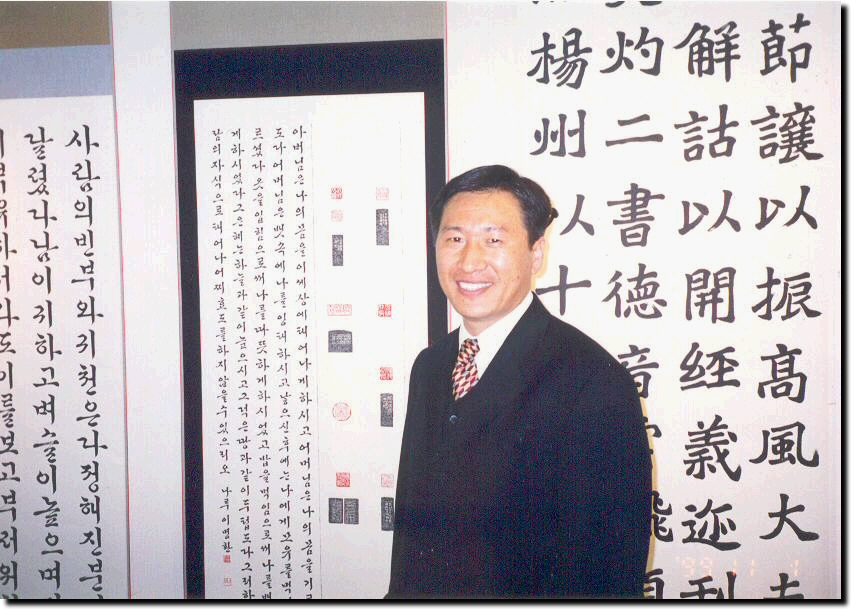 節讓以振高風大
解詁以開經義迩刊
灼二書德音
楊州以十
아버님은나의몸을이세상에태어나게하시고어머님은나의몸을기
도다어머님은뱃속에나를잉태하시고낳으신후에는나에게모유를먹
르셨다옷을입힘으로써나를따뜻하게하시었고밥을먹임으로써나를배
게하시었다그은혜는하늘과같이높으시고그덕은땅과같이두텁도다그러하
람의자식으로태어나어찌효도를하지않을수있으리오 나루이명환
사람의빈부와귀천은다정해진분
날렸다남이귀하고벼슬이높으며
도이를보고부러워
'99 11 1